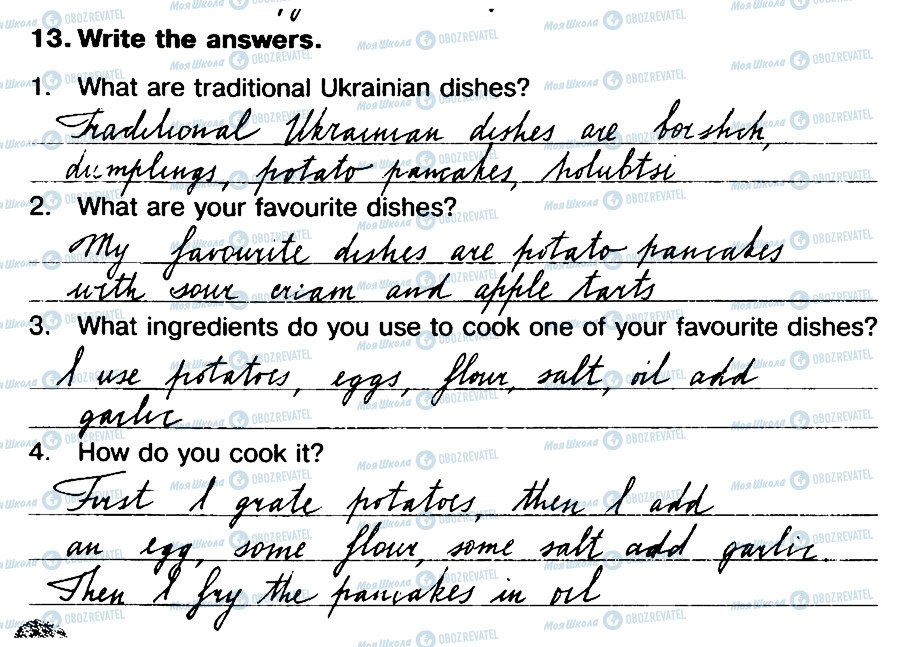 13. Write the answers.
1. What are traditional Ukrainian dishes?
Traditional Ukrainian dishes are borshch,
dumplings, potato pancakes, holubtsi
2. What are your favourite dishes?
My favourite dishes are potato pancakes
with sour cream and apple tarts
3. What ingredients do you use to cook one of your favourite dishes?
I use potatoes, eggs, flour, salt, oil add
garlic
4. How do you cook it?
First I grate potatoes, then I add
an egg, some flour, some salt add garlic.
Then I fry the pancakes in oil
Моя Школа OBOZREVATEL